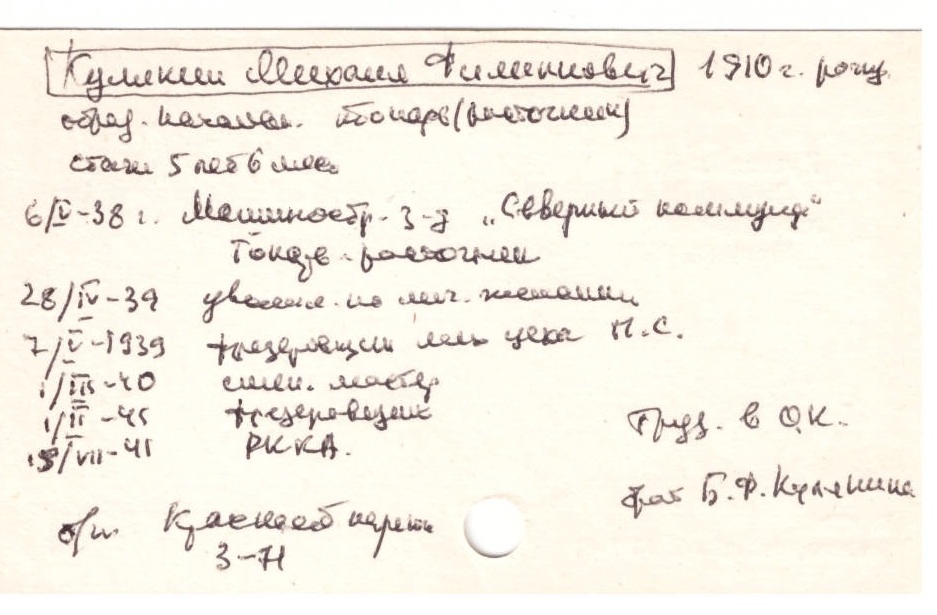 Кулякин Михаил Филиппович 1910 г. рожд.
образ. начальн. токарь (расточник)
стаж 5 лет 6 мес.
6/V-38 г. Машиностр. з-д "Северный коммунар"
Токарь-расточник
28/IV-39 уволен по лич. желании
7/V-1939 фрезеровщик цеха М.С.
1/III-40 смен. мастер
1/II-41 фрезеровщик
15/VII-41 РККА.
Труд. в О.К.
брат Б.Ф. Кулякина
б/п
3-71